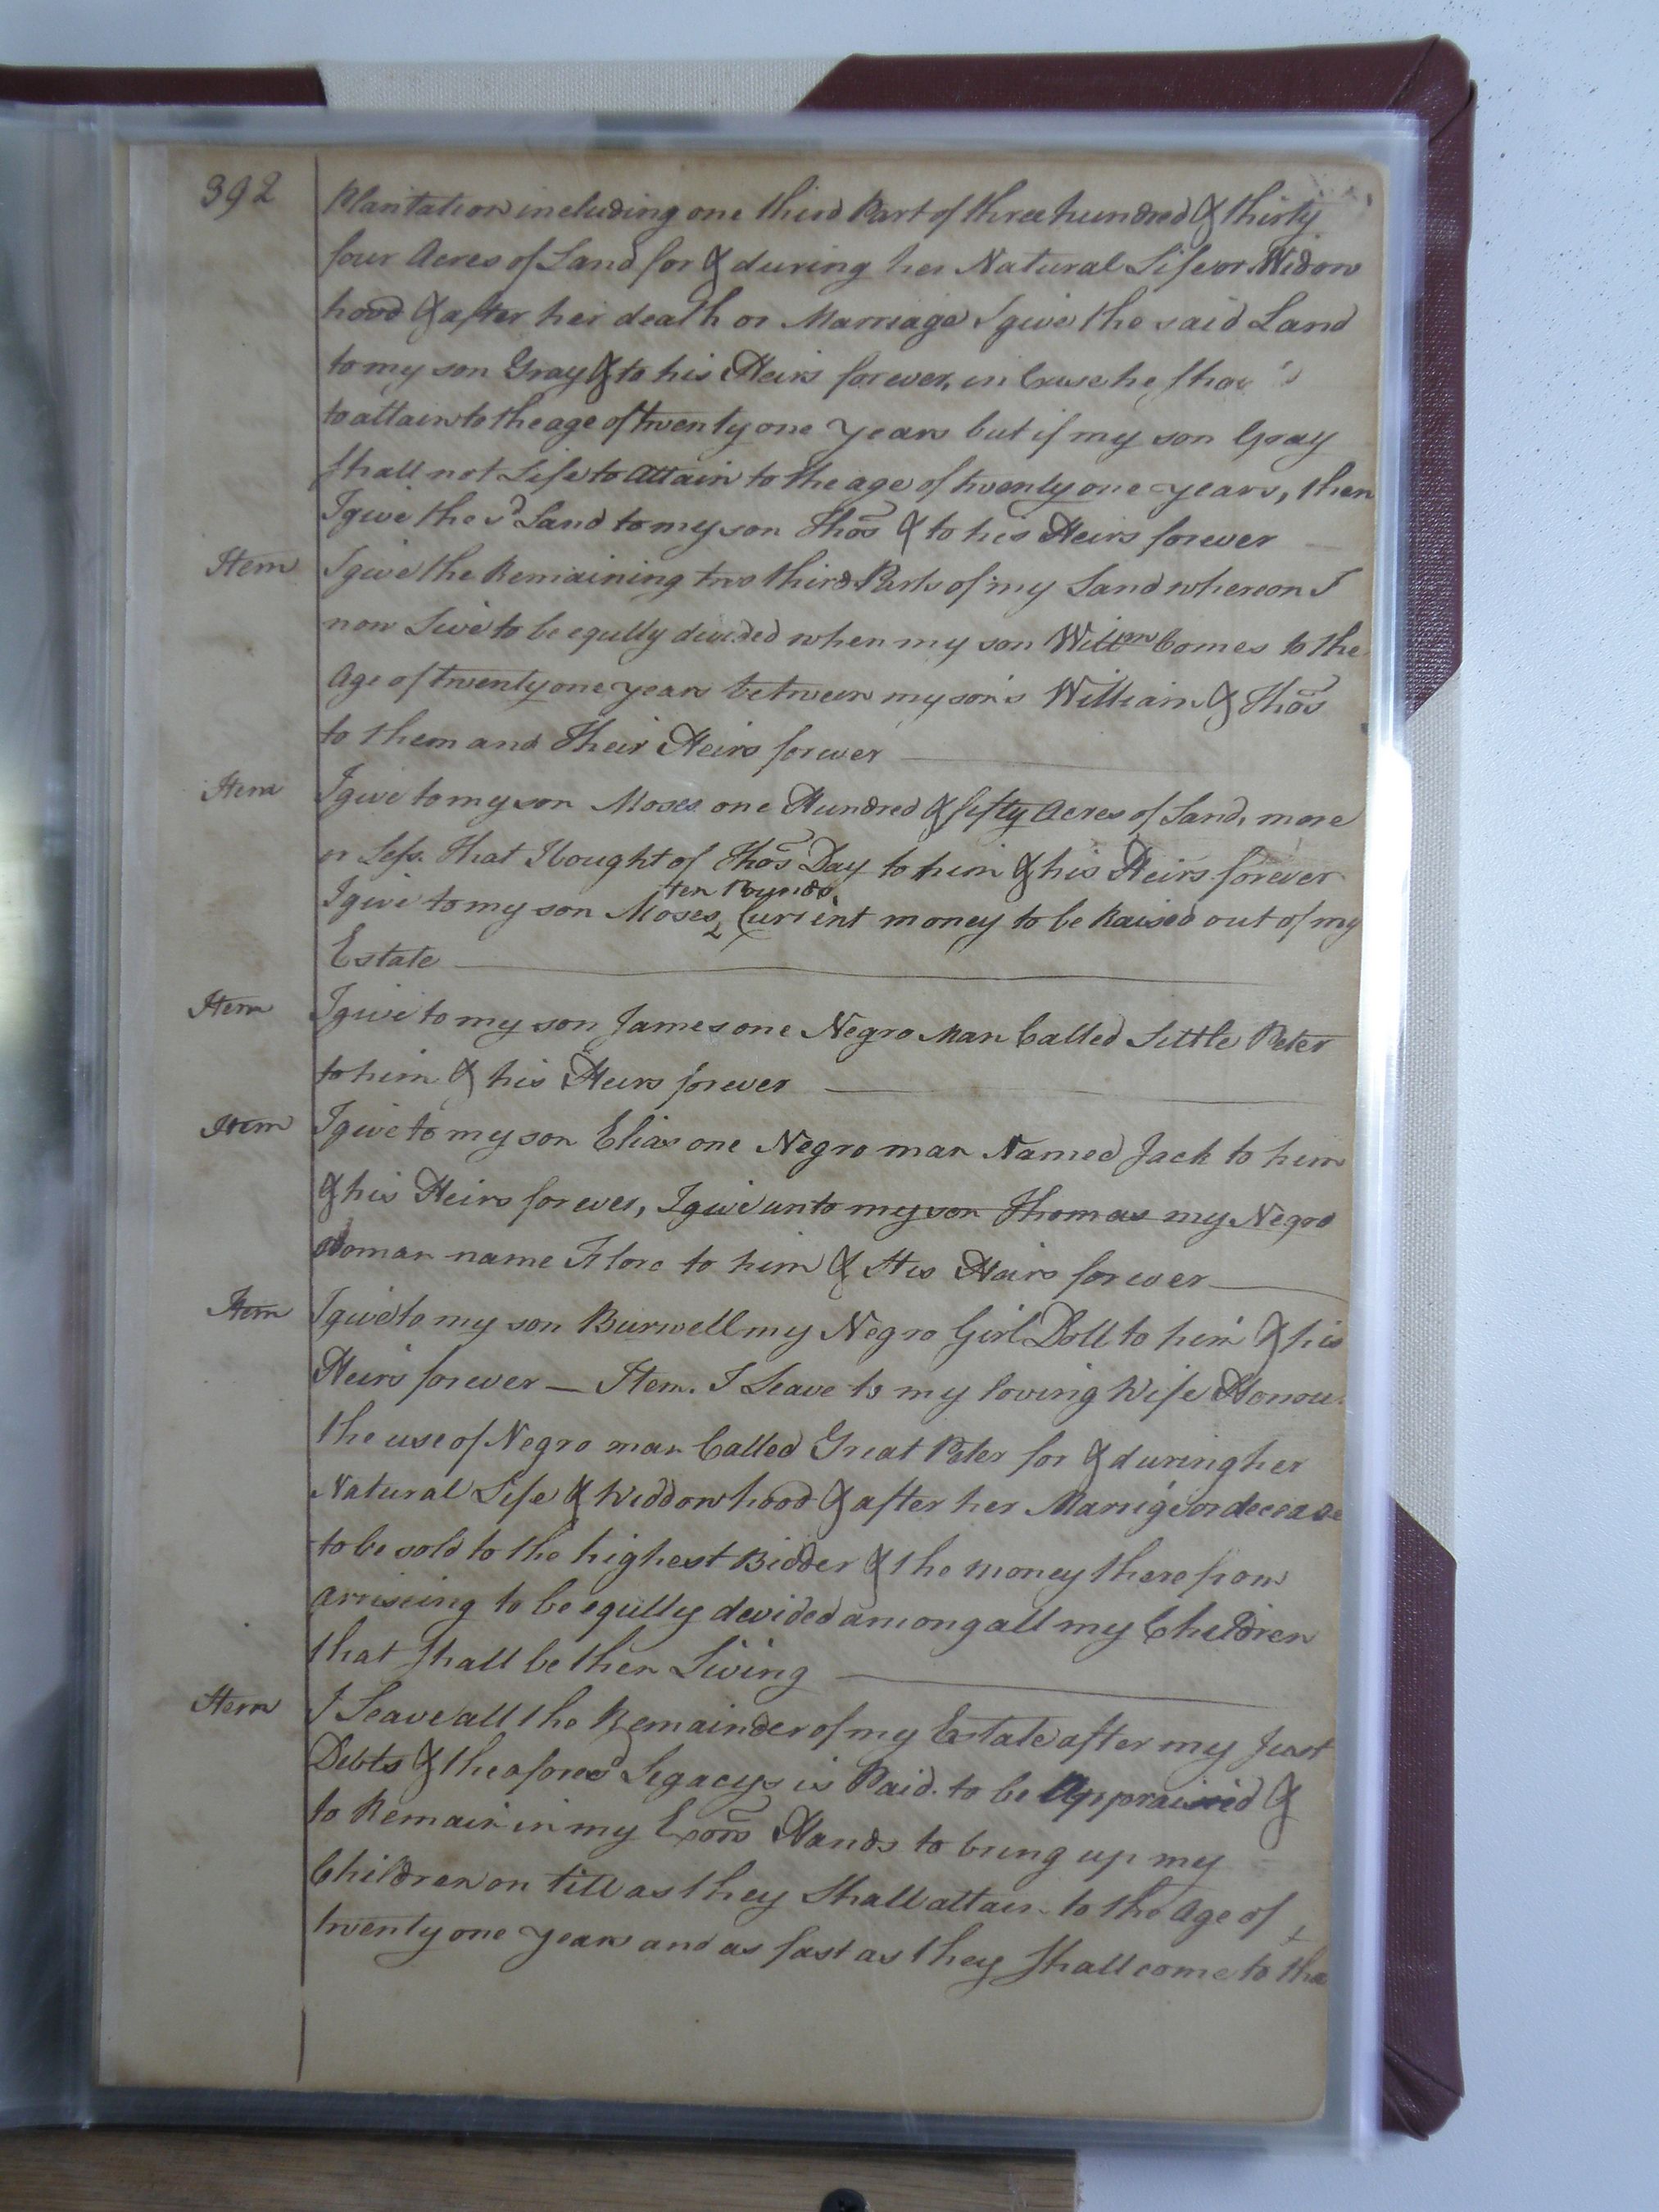 392
Plantation including one third Part of three hundred & thirty
four Acres of Land for & during her Natural Life or Widow
hood & after her death or Marriage I give the said Land
to my son Gray & to his Heirs forever, in Case he
to attain to the age of twenty one years but if my son Gray
shall not Life to Attain to the age of twenty one years, then
I give the sd Land to my son Thos & to his Heirs forever
Item I give the Remaining two third Parts of my Land whereon I
now Live to be eqully divided when my son Willm Comes to the
Age of twenty one years between my son's William & Thos
to them and Their Heirs forever
Item I give to my son Moses one Hundred & fifty Acres of Land, more
or Less. That I bought of Thos Day to him & his Heirs forever
I give to my son Moses ten Pounds Current money to be Raised out of my
Estate
Item I give to my son James one Negro Man Called Little Peter
to him & his Heirs forever
Item I give to my son Elias one Negro man Named Jack to him
& his Heirs forever, I give unto my son Thomas my Negro
Woman name Flora to him & His Heirs forever
Item I give to my son Burwell my Negro Girl Doll to him & his
Heirs forever — Item. I Leave to my loving Wife Honou
the use of Negro man Called Great Peter for & during her
Natural Life & Widdowhood & after her Marrige or decease
to be sold to the highest Bidder & the money there from
Arriseing to be eqully devided among all my Children
that shall be then Living
Item I Leave all the Remainder of my Estate after my Just
Debts & the aforesd Legacys is Paid. to be Appraised &
to Remain in my Exors Hands to bring up my
Children on till as they Shall attain to the Age of
twenty one years and as fast as they shall come to tha